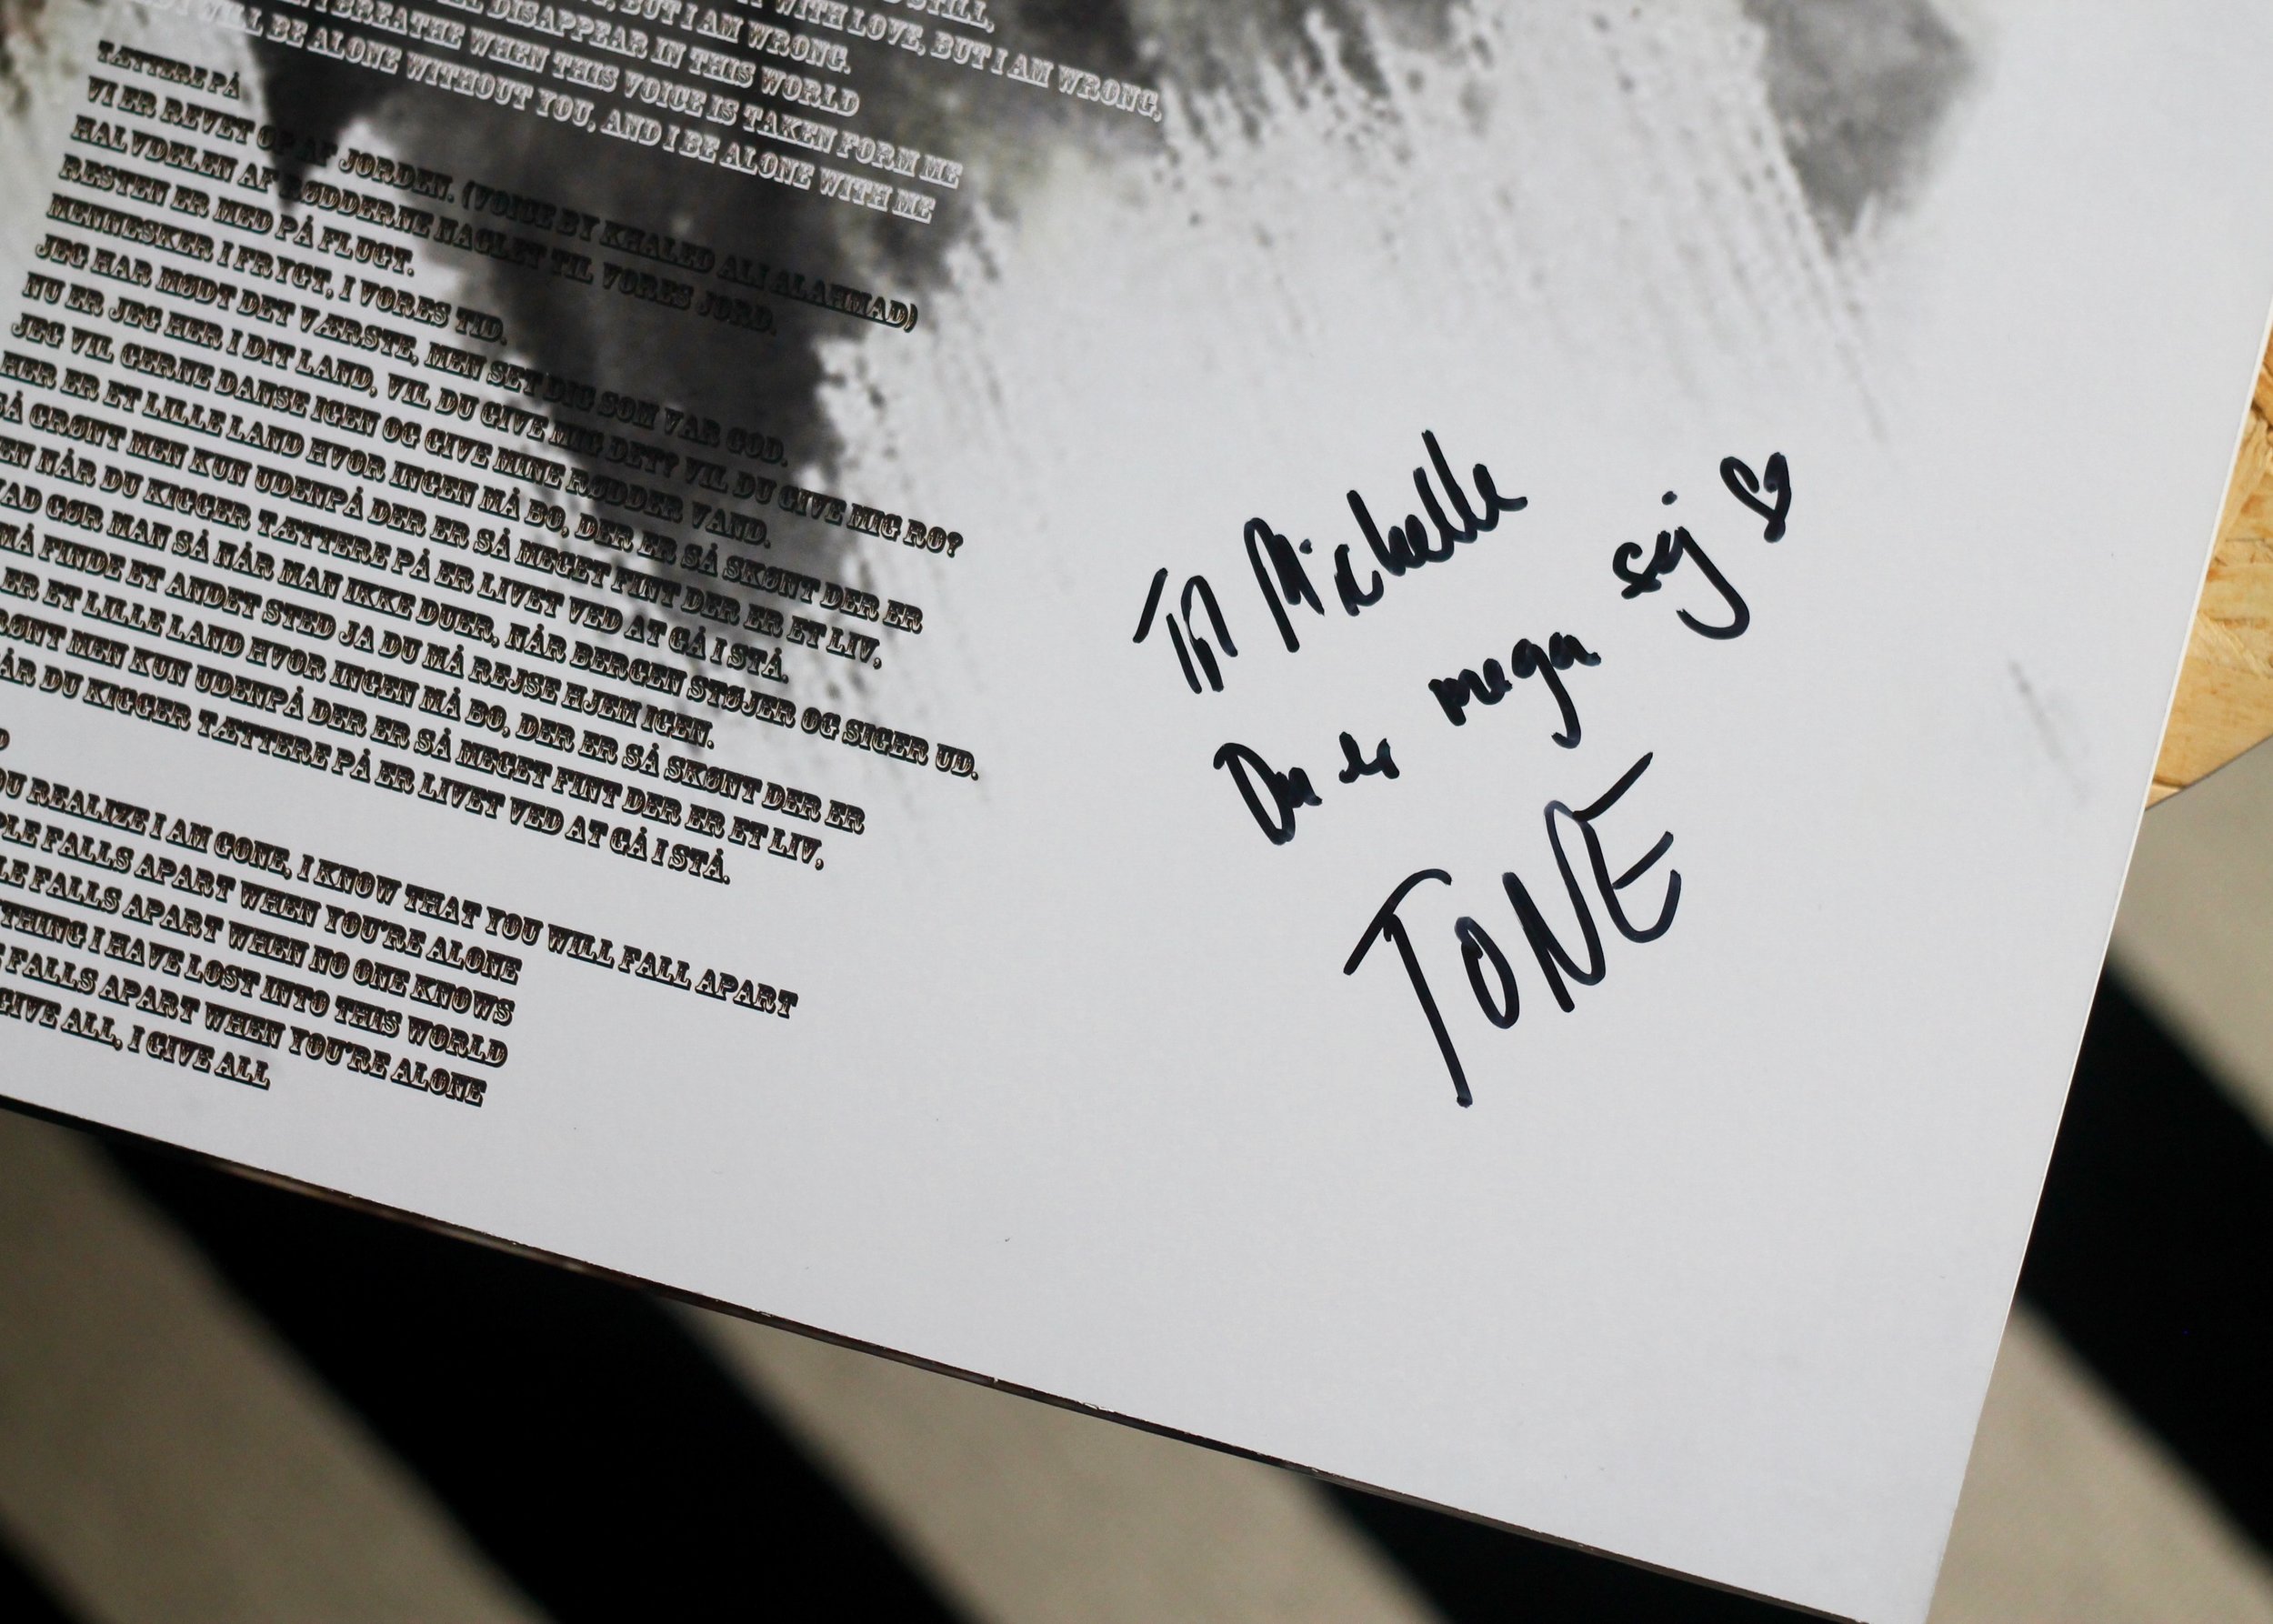 STILL,
WITH LOVE, BUT I AM WRONG,
BUT I AM WRONG.
DISAPPEAR IN THIS WORLD
I BREATHE WHEN THIS VOICE IS TAKEN FORM ME
I WILL BE ALONE WITHOUT YOU, AND I BE ALONE WITH ME
TÆTTERE PÅ
VI ER REVET OP AF JORDEN. (VOICE BY KHALED ALI ALAHMAD)
HALVDELEN AF RØDDERNE NAGLET TIL VORES JORD.
RESTEN ER MED PÅ FLUGT.
MENNESKER I FRYGT, I VORES TID.
JEG HAR MØDT DET VÆRSTE, MEN SET DIG SOM VAR GOD.
NU ER JEG HER I DIT LAND, VIL DU GIVE MIG DET? VIL DU GIVE MIG RO?
JEG VIL GERNE DANSE IGEN OG GIVE MINE RØDDER VAND.
HER ER ET LILLE LAND HVOR INGEN MÅ BO, DER ER SÅ SKØNT DER ER
SÅ GRØNT MEN KUN UDENPÅ DER ER SÅ MEGET FINT DER ER ET LIV,
EN NÅR DU KIGGER TÆTTERE PÅ ER LIVET VED AT GÅ I STÅ.
AD GØR MAN SÅ NÅR MAN IKKE DUER, NÅR BERGEN STØJER OG SIGER UD.
MÅ FINDE ET ANDET STED JA DU MÅ REJSE HJEM IGEN.
ER ET LILLE LAND HVOR INGEN MÅ BO, DER ER SÅ SKØNT DER ER
RØNT MEN KUN UDENPÅ DER ER SÅ MEGET FINT DER ER ET LIV,
ÅR DU KIGGER TÆTTERE PÅ ER LIVET VED AT GÅ I STÅ.
OU REALIZE I AM GONE, I KNOW THAT YOU WILL FALL APART
PLE FALLS APART WHEN YOU'RE ALONE
LE FALLS APART WHEN NO ONE KNOWS
THING I HAVE LOST INTO THIS WORLD
FALLS APART WHEN YOU'RE ALONE
GIVE ALL, I GIVE ALL
Til Michelle
Du er mega sej ♡
TONE